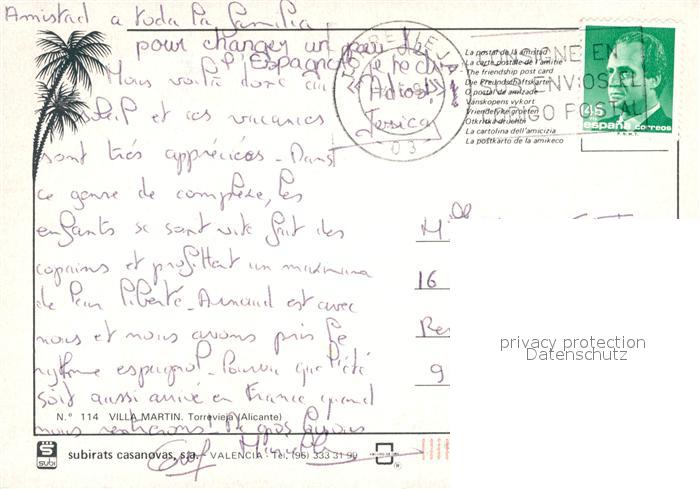 Amistad a toda la familia
pour changer un peu
l'Espagnol je te dis
Adios!!
Jessica
Nous voilà donc au
soleil et ces vacances
sont très appréciées - Dans
ce genre de complexe, les
enfants se sont vite fait des
copains et profitent un maximum
de leur liberté - Arnaud est avec
nous et nous avons pris le
rythme espagnol. Pourvu que l'été
soit aussi arrivé en France quand
nous rentrerons! De gros bisous
TORREVIEJA
03
CONSIGNE EN
ENVIOS EL
CODIGO POSTAL
45
españa correos
F.N.M.T.
La postal de la amistad
La carte postale de l'amitié
The friendship post card
Die Freundschaftskarte
O postal de amizade
Vänskopens vykort
Vriendelijke groeten
Otkritka druzhbi
La cartolina dell'amicizia
La postkarto de la amikeco
Mlle
16
Re
9
privacy protection
Datenschutz
N.° 114 VILLA MARTIN. Torrevieja (Alicante)
subi
subirats casanovas, s.a. VALENCIA - Tel. (96) 333 31 90
®